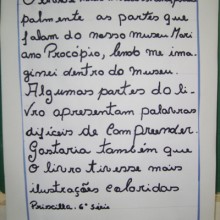 palmente as partes que
falam do nosso museu Mari
ano Procópio, lendo me ima
ginei dentro do museu.
Algumas partes do li-
vro apresentam palavras
difíceis de compreender.
Gostaria também que
o livro tivesse mais
ilustrações coloridas
Priscilla. 6ª série